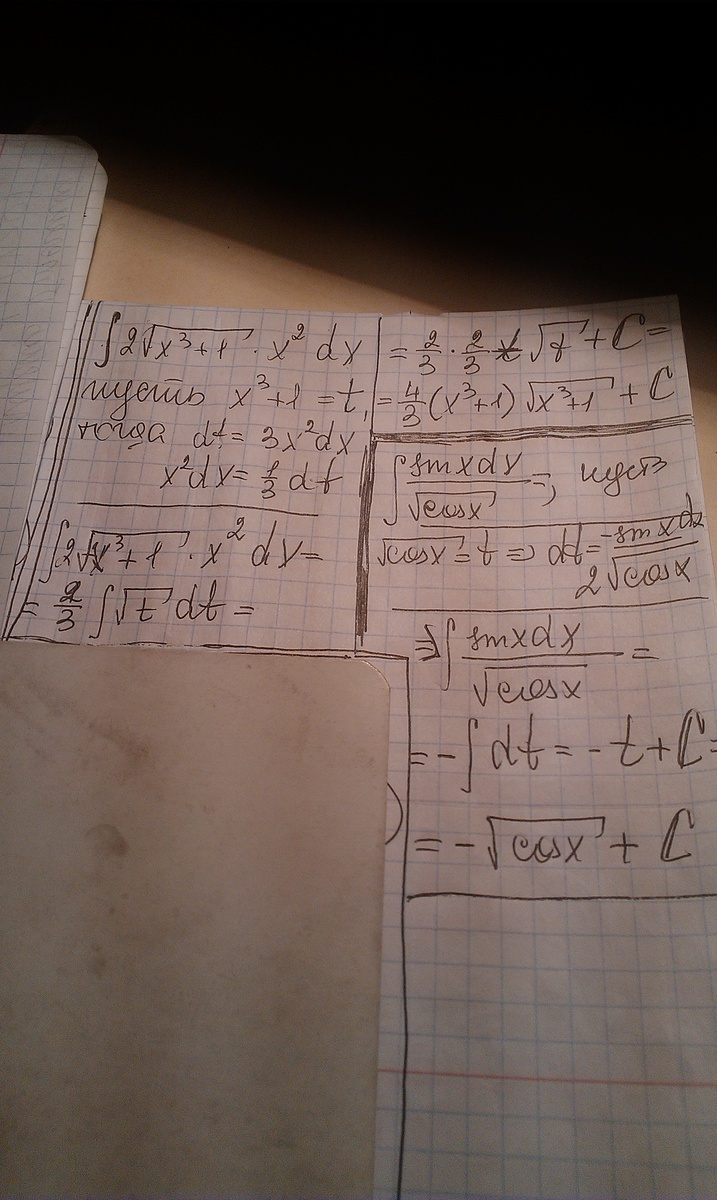 ∫ 2√(x³+1) · x² dx
пусть x³+1 = t,
тогда dt = 3x²dx
x²dx = 1/3 dt
∫ 2√(x³+1) · x² dx =
= 2/3 ∫ √t dt =
= 2/3 · 2/3 t √t + C =
= 4/3 (x³+1) √(x³+1) + C
∫ sinxdx/√cosx =, пусть
√cosx = t ⇒ dt = -sinxdx/2√cosx
⇒ ∫ sinxdx/√cosx =
= -∫ dt = -t + C =
= -√cosx + C